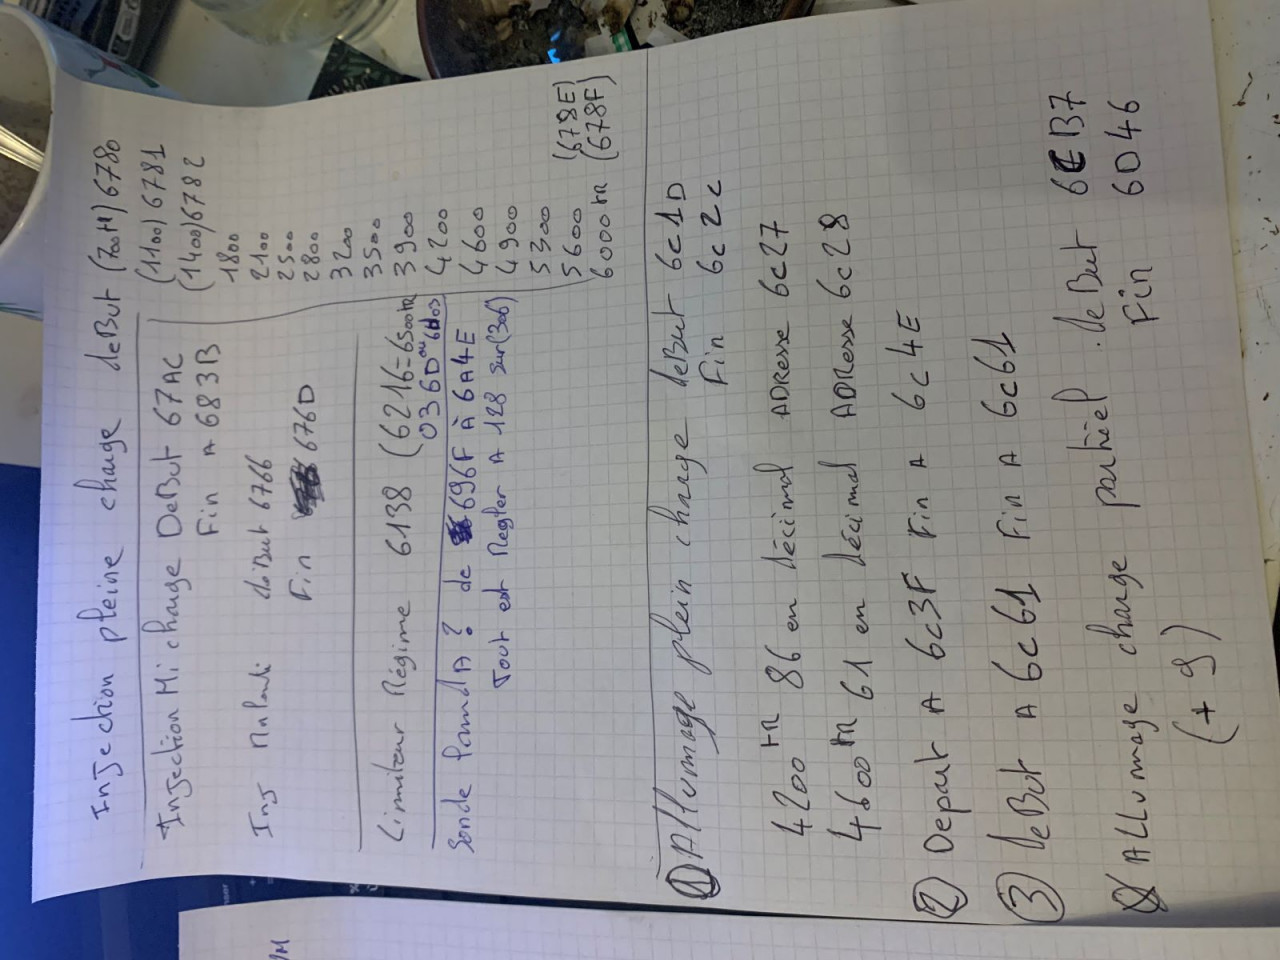 Injection pleine charge deBut (700tr) 6780
(1100) 6781
(1400) 6782
1800
2100
2500
2800
3200
3500
3900
4200
4600
4900
5300
5600 (678E)
6000 tR (678F)
Injection Mi charge DeBut 67AC
Fin A 683B
Inj Ralenti deBut 6766
Fin 676D
Limiteur Régime 6138 (6216=6500tR
036D ou
Sonde LambdA? de 696F À 6A4E
Tout est Regler A 128 sur(306)
① Allumage plein charge deBut 6c1D
Fin 6c2c
4200 tR 86 en décimal ADResse 6c27
4600 tR 61 en décimal ADResse 6c28
② Depart A 6c3F Fin A 6c4E
③ deBut A 6c61 Fin A 6c61
ALLummage charge partiel. deBut 6CB7
Fin 6D46
(+ 9)